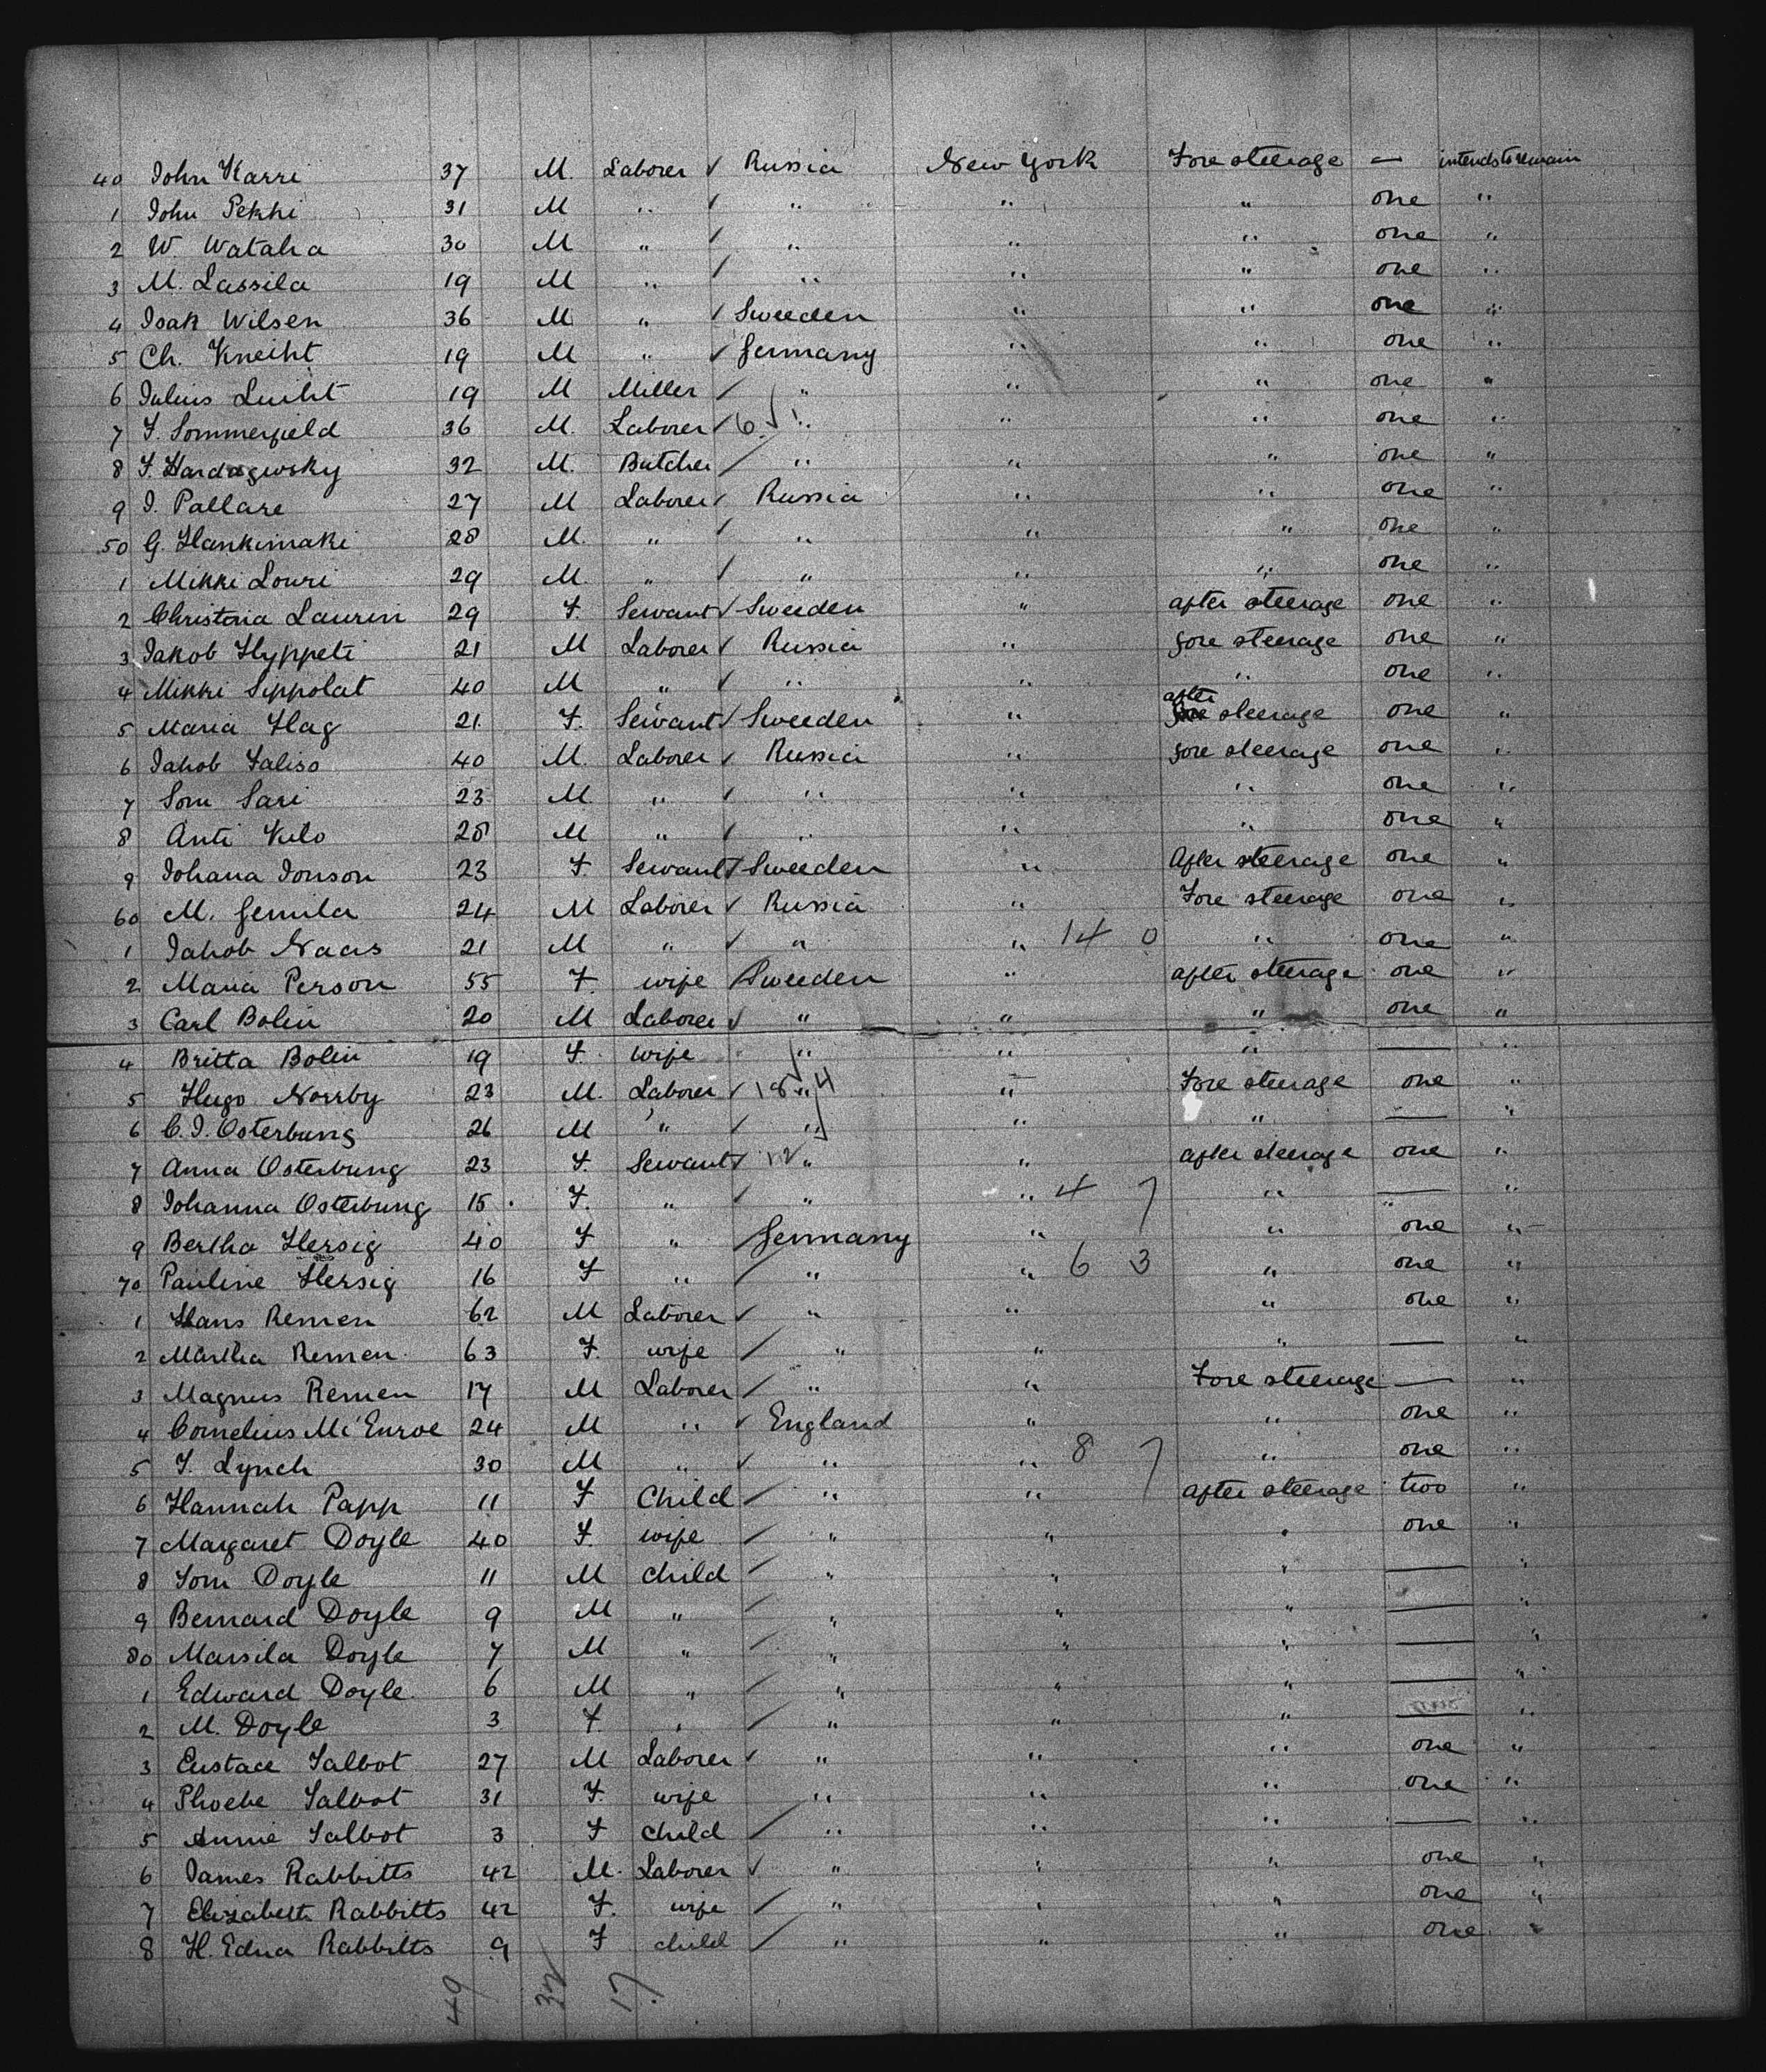 40 John Karri 37 M. Laborer ✓ Russia New York Fore steerage — intends to remain
1 John Pekki 31 M " / " " " one "
2 W. Wataha 30 M " / " " " one "
3 M. Lassila 19 M " / " " " one "
4 Isak Wilsen 36 M " / Sweeden " " one "
5 Ch. Kneiht 19 M " ✓ Germany " " one "
6 Julius Luiht 19 M Miller / " " " one "
7 F. Sommerfield 36 M. Laborer / 6 " " " one "
8 F. 32 M. Butcher / " " " one "
9 I. Pallare 27 M Laborer / Russia " " one "
50 G. Hankimaki 28 M. " / " " " one "
1 Mikki Louri 29 M. " / " " " one "
2 Christina Laurin 29 F. Servant ✓ Sweeden " after steerage one "
3 Jakob Hyppeti 21 M Laborer ✓ Russia " fore steerage one "
4 Mikki Sippolat 40 M " / " " " one "
after
5 Maria Hag 21. F. Servant ✓ Sweeden " fore steerage one "
6 Jakob Faliso 40 M. Laborer ✓ Russia " fore steerage one "
7 Som Sari 23 M. " / " " " one "
8 Anti Kilo 28 M " / " " " one "
9 Johana Jonson 23 F. Servant ✓ Sweeden " After steerage one "
60 M. Gemila 24 M Laborer ✓ Russia " Fore steerage one "
1 Jakob Naas 21 M " ✓ " " 14 0 " one "
2 Maria Person 55 F. wife / Sweeden " after steerage one "
3 Carl Bolin 20 M Laborer ✓ " " " one "
4 Britta Bolin 19 F. wife " " " — "
5 Hugo Norrby 23 M. Laborer ✓ 18 " 4 " Fore steerage one "
6 C. J. Osterbung 26 M " / " " " — "
7 Anna Osterbung 23 F. Servant ✓ 12 " " after steerage one "
8 Johanna Osterbung 15. F. " / " " 4 7 " — "
9 Bertha Hersig 40 F " / Germany " " one "
70 Pauline Hersig 16 F " / " " 6 3 " one "
1 Hans Remen 62 M Laborer ✓ " " " one "
2 Martha Remen 63 F. wife / " " " — "
3 Magnus Remen 17 M Laborer / " " Fore steerage — "
4 Cornelius Mc Enroe 24 M " ✓ England " " one "
5 T. Lynch 30 M " ✓ " " 8 7 " one "
6 Hannah Papp 11 F Child / " " after steerage two "
7 Margaret Doyle 40 F. wife / " " " one "
8 Tom Doyle 11 M child / " " " — "
9 Bernard Doyle 9 M " / " " " — "
80 Marsila Doyle 7 M " / " " " — "
1 Edward Doyle. 6 M " / " " " — "
2 M. Doyle 3 F. " / " " " — "
3 Eustace Talbot 27 M Laborer ✓ " " " one "
4 Phoebe Talbot 31 F. wife " " " one "
5 Annie Talbot 3 F child / " " " — "
6 James Rabbitts 42 M. Laborer ✓ " " " one "
7 Elizabeth Rabbitts 42 F. wife / " " " one "
8 H. Edna Rabbitts 9 F child / " " " one "
49 32 17